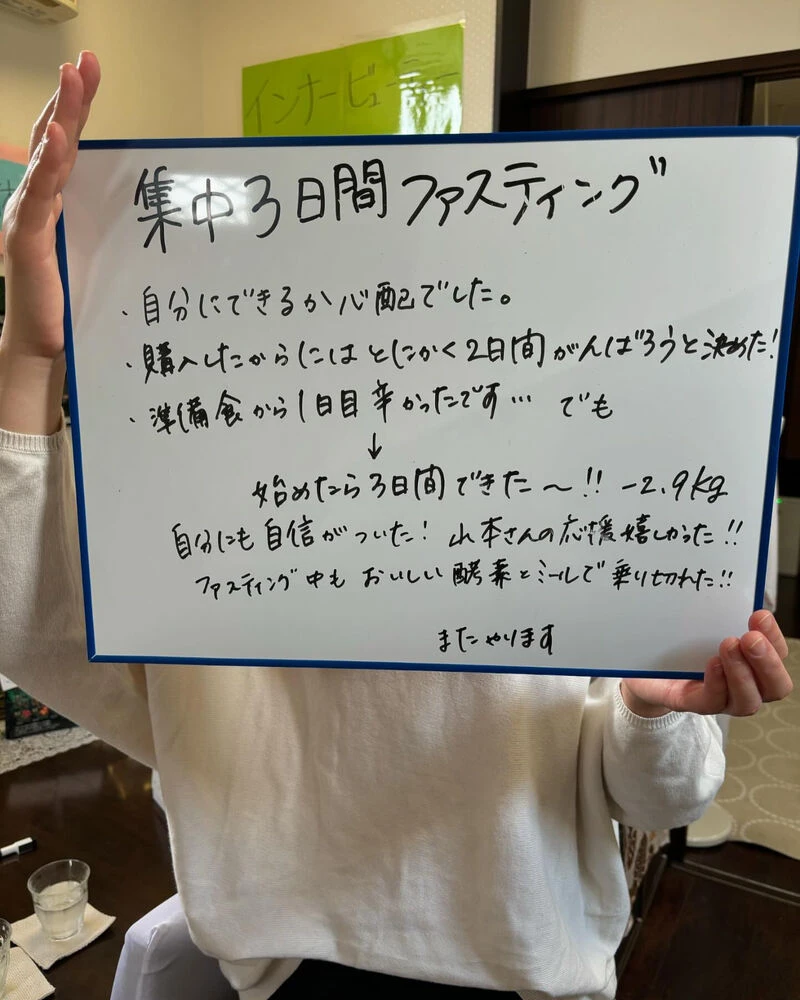 インナービューティー
集中3日間ファスティング
・自分にできるか心配でした。
・購入したからにはとにかく2日間がんばろうと決めた!
・準備食から1日目辛かったです… でも
↓
始めたら3日間できた〜!! -2.9kg
自分にも自信がついた! 山本さんの応援嬉しかった!!
ファスティング中も おいしい酵素とミールで乗り切れた!!
またやります